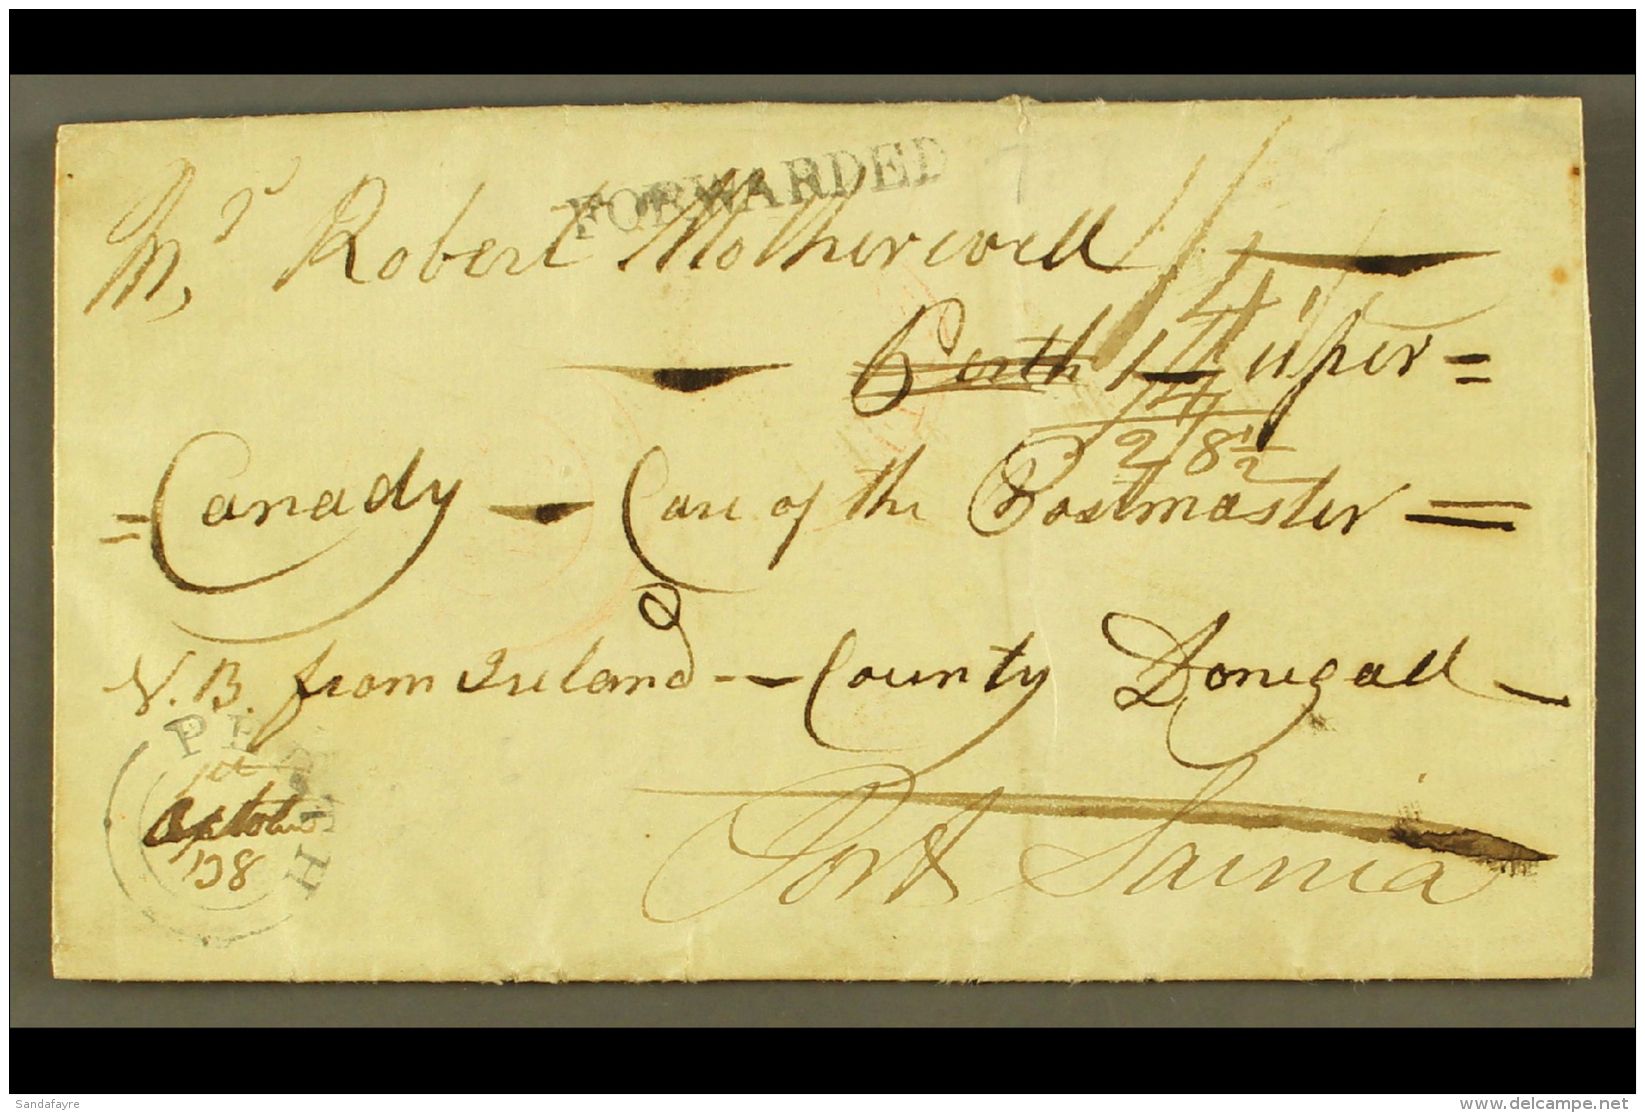 FORWARDED
Mr. Robert Motherwell
Perth Upper =
= Canady - Care of the Postmaster =
2/8½
N.B. from Ireland - County Donegall -
PERTH
October
Port Sarnia
Sandafayre
www.delcampe.net